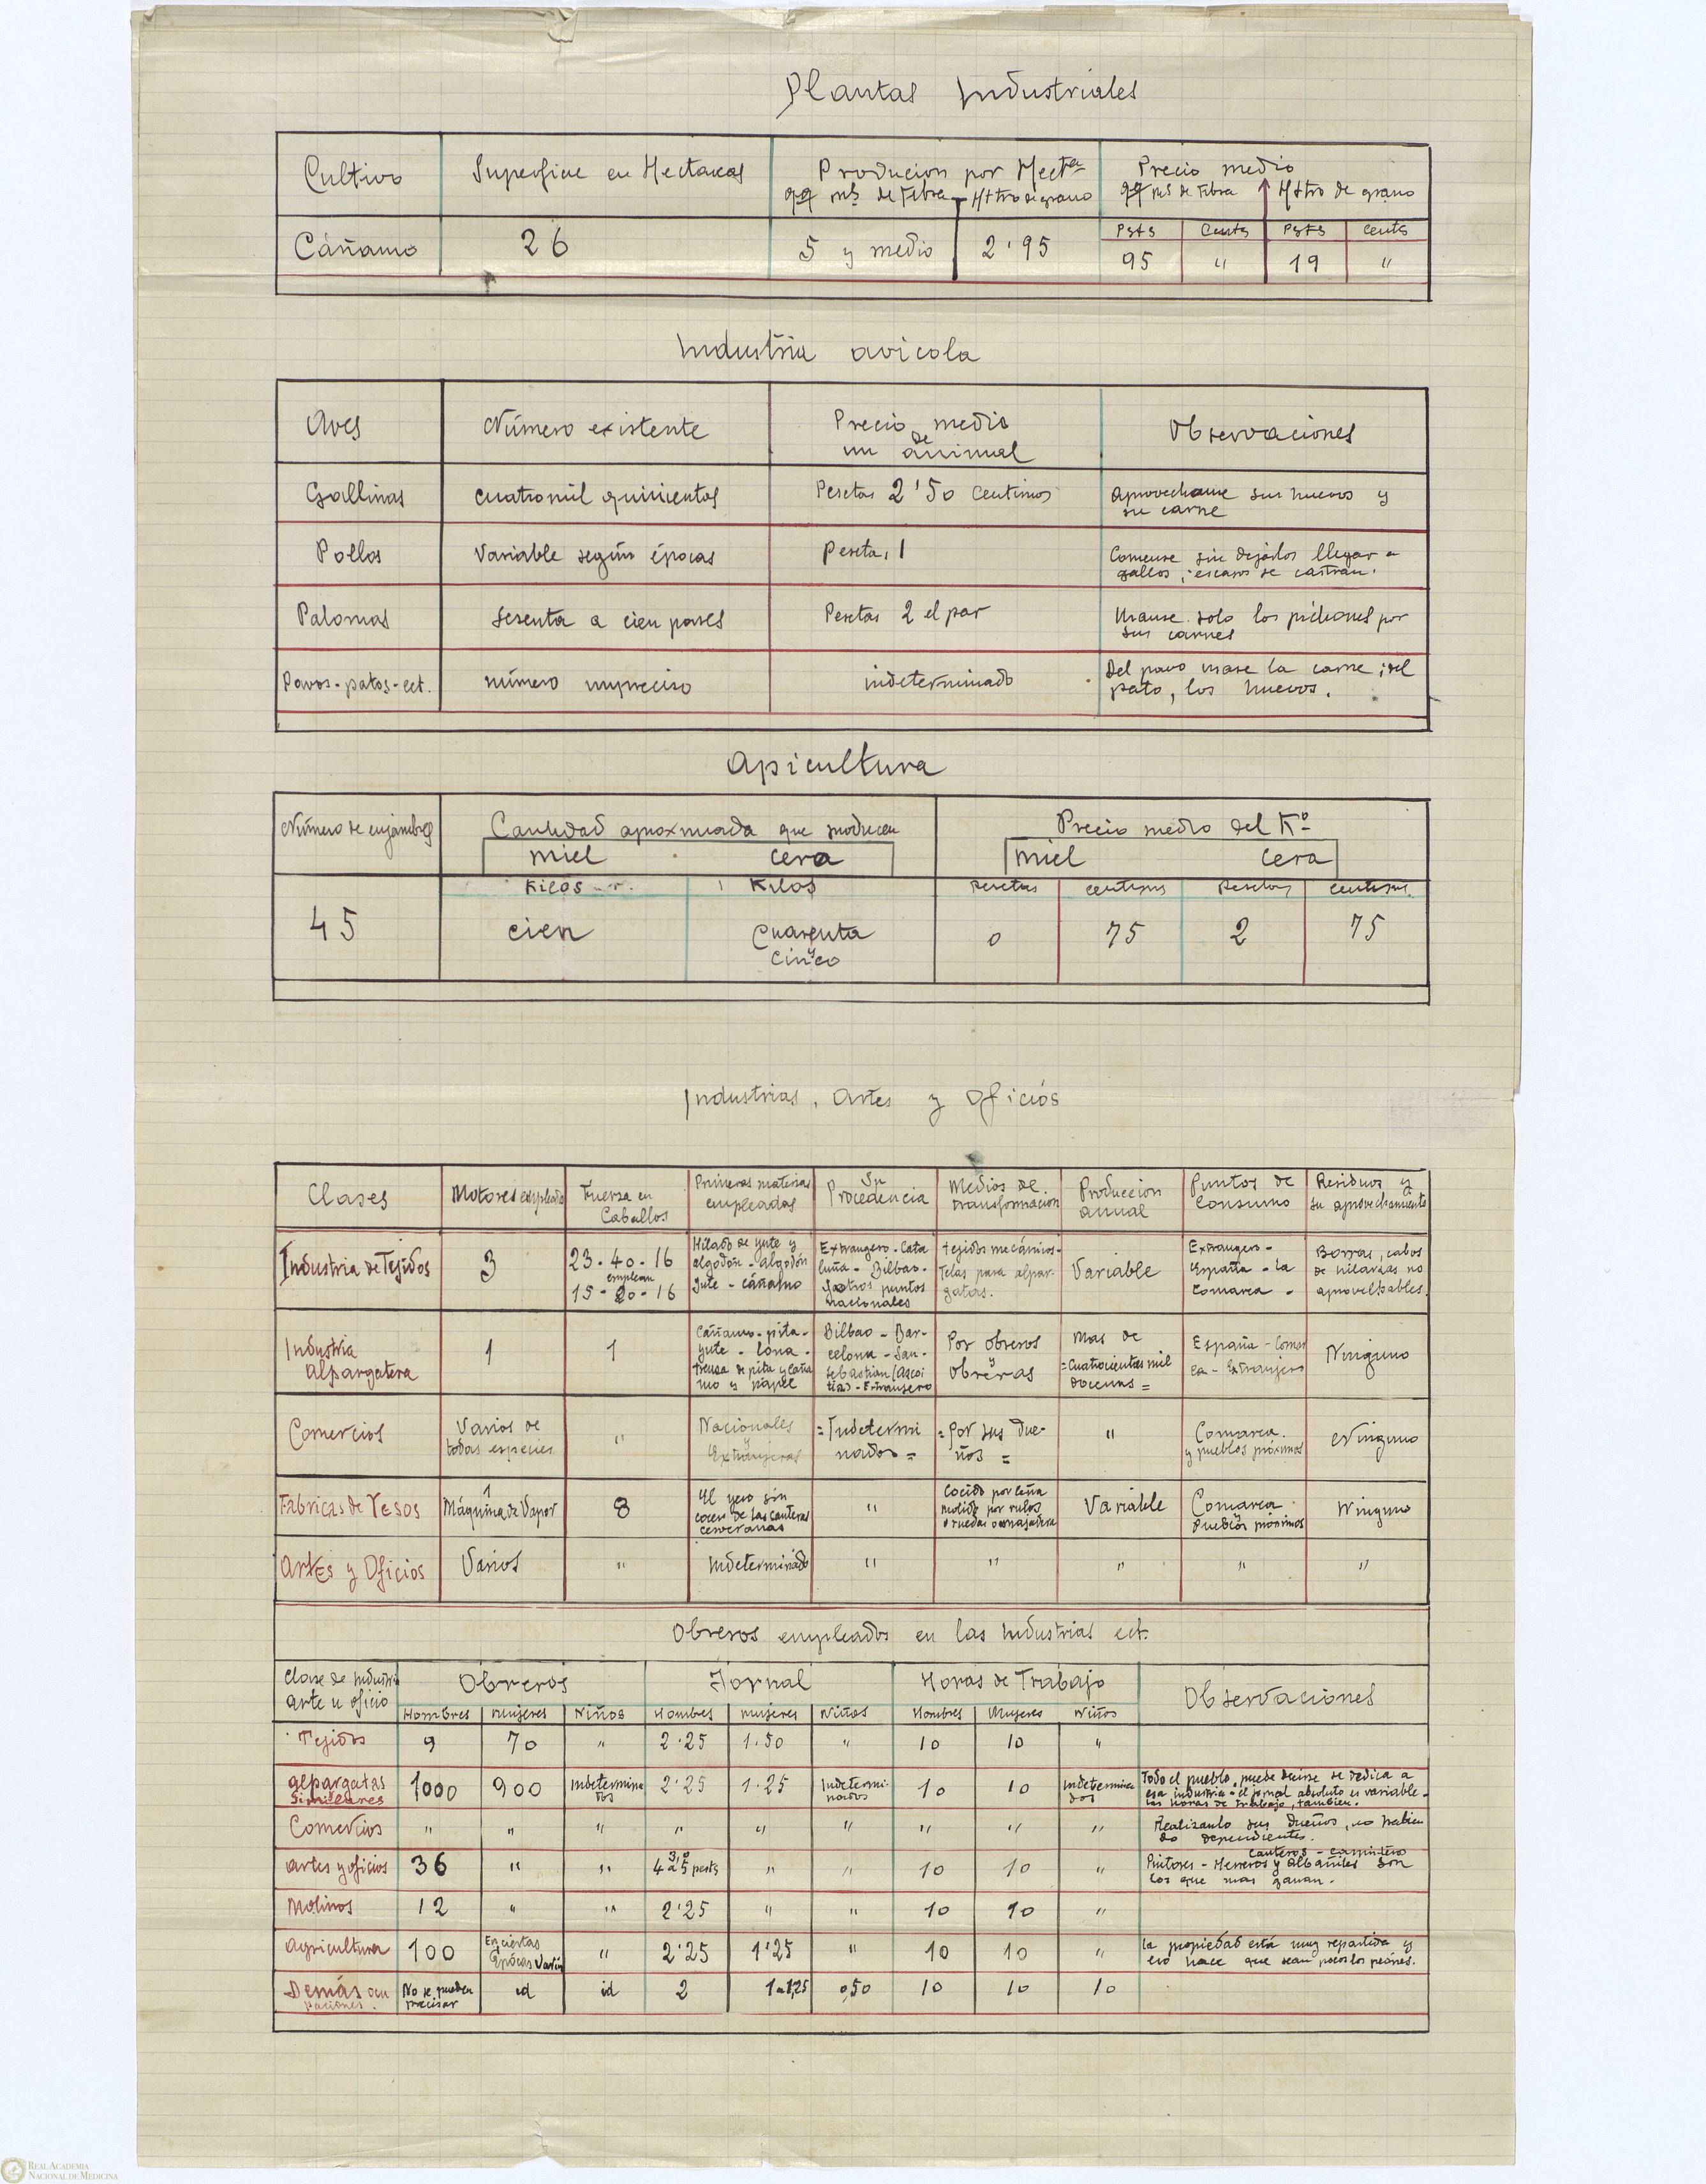 Plantas Industriales
Cultivo
Superficie en Hectareas
Produccion por Hectª
qq ms de Fibra
H/tro de grano
Precio medio
qq ms de Fibra
H/tro de grano
Psts
Cents
Psts
Cents
Cáñamo
26
5 y medio
2'95
95
"
19
"
Industria avicola
Aves
Número existente
Precio medio
de
un animal
Observaciones
Gallinas
cuatromil quinientos
Pesetas 2'50 centimos
aprovechanse sus huevos y
su carne
Pollos
Variable según épocas
Peseta, 1
Comense sin dejarlos llegar a
gallos, escasos se castran.
Palomas
sesenta a cien pares
Pesetas 2 el par
Usanse solo los pichones por
sus carnes
Pavos-patos-ect.
número impreciso
indeterminado
Del pavo usase la carne; del
pato, los huevos.
Apicultura
Número de enjambres
Cantidad aproximada que producen
miel
cera
Precio medio del Kº
miel
cera
Kilos
Kilos
Pesetas
centimos
Pesetas
centimos
45
cien
Cuarenta
y
cinco
0
75
2
75
Industrias, Artes y Oficiós
Clases
Motores empleados
Fuerza en
Caballos
Primeras materias
empleadas
Su
Procedencia
Medios de
transformacion
Produccion
anual
Puntos de
Consumo
Residuos y
su aprovechamiento
Industria de Tejidos
3
23-40-16
emplean
15-20-16
Hilado de yute y
algodón - algodón
yute - cáñamo
Extrangero-Cata
luña - Bilbao-
y otros puntos
nacionales
Tejidos mecánicos-
Telas para alpar-
gatas.
Variable
Extrangero-
España - la
Comarca -
Borras, cabos
de hilazas no
aprovechables.
Industria
Alpargatera
1
1
Cáñamo-pita-
yute - lona -
trenza de pita y caña
mo y papel
Bilbao - Bar-
celona - San-
sebastian (Azcoi
tia) - Extranjero
Por obreros
y
obreras
Mas de
=Cuatrocientas mil
docenas =
España - Comar
ca - Extranjero
Ninguno
Comercios
Varios de
todas especies
"
Nacionales
y
Extranjeras
=Indetermi
nados=
=Por sus due-
ños =
"
Comarca
y pueblos próximos
Ninguno
Fábricas de Yesos
1
Máquina de Vapor
8
El yeso sin
cocer de las canteras
cerveranas
"
Cocido por leña
molido por rulos
Variable
Comarca
y
Pueblos próximos
Ninguno
Artes y Oficios
Varios
"
Indeterminado
"
"
"
"
"
Obreros empleados en las Industrias ect.
Clase de Industria
arte u oficio
Obreros
Jornal
Horas de Trabajo
Observaciones
Hombres
Mujeres
Niños
Hombres
Mujeres
Niños
Hombres
Mujeres
Niños
Tejidos
9
70
"
2'25
1.50
"
10
10
"
Alpargatas
Similares
1000
900
Indetermina
dos
2'25
1'25
Indetermi-
nados
10
10
indetermina
dos
Todo el pueblo puede decirse se dedica a
esa industria - el jornal absoluto es variable-
las horas de trabajo, tambien.
Comercios
"
"
"
"
"
"
"
"
"
Realizanlo sus dueños, no habien
do dependientes.
Artes y oficios
36
"
"
3, o
4 a 5 pesets
"
"
10
10
"
canteros - carpintero
Pintores - Herreros y Albañiles son
los que mas ganan.
Molinos
12
"
"
2'25
"
"
10
10
"
Agricultura
100
En ciertas
Epócas Varía
"
2'25
1'25
"
10
10
"
La propiedad está muy repartida y
eso hace que sean pocos los peónes.
Demás ocu
paciones.
No se pueden
precisar
id
id
2
1 a 1,25
0,50
10
10
10
REAL ACADEMIA
NACIONAL DE MEDICINA